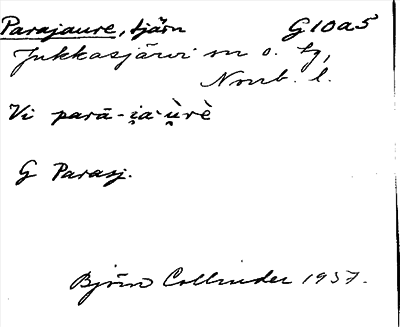 Parajaure, tjärn G10a5
Jukkasjärvi sn o. tg,
Norrb. l.
Vi parā-i̯a·ù̯rè
G Parasj.
Björn Collinder 1937.